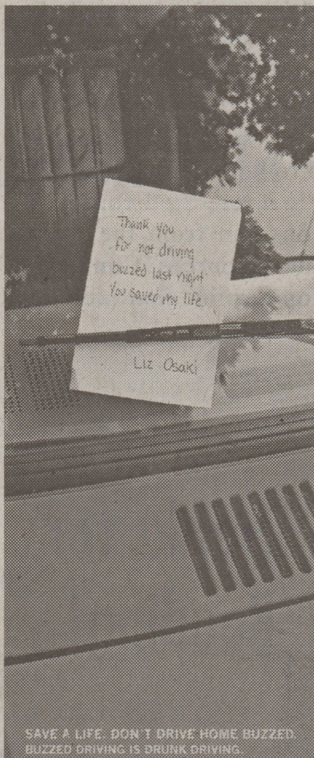 Thank you
for not driving
buzzed last night
You saved my life
Liz Osaki
SAVE A LIFE. DON'T DRIVE HOME BUZZED.
BUZZED DRIVING IS DRUNK DRIVING.